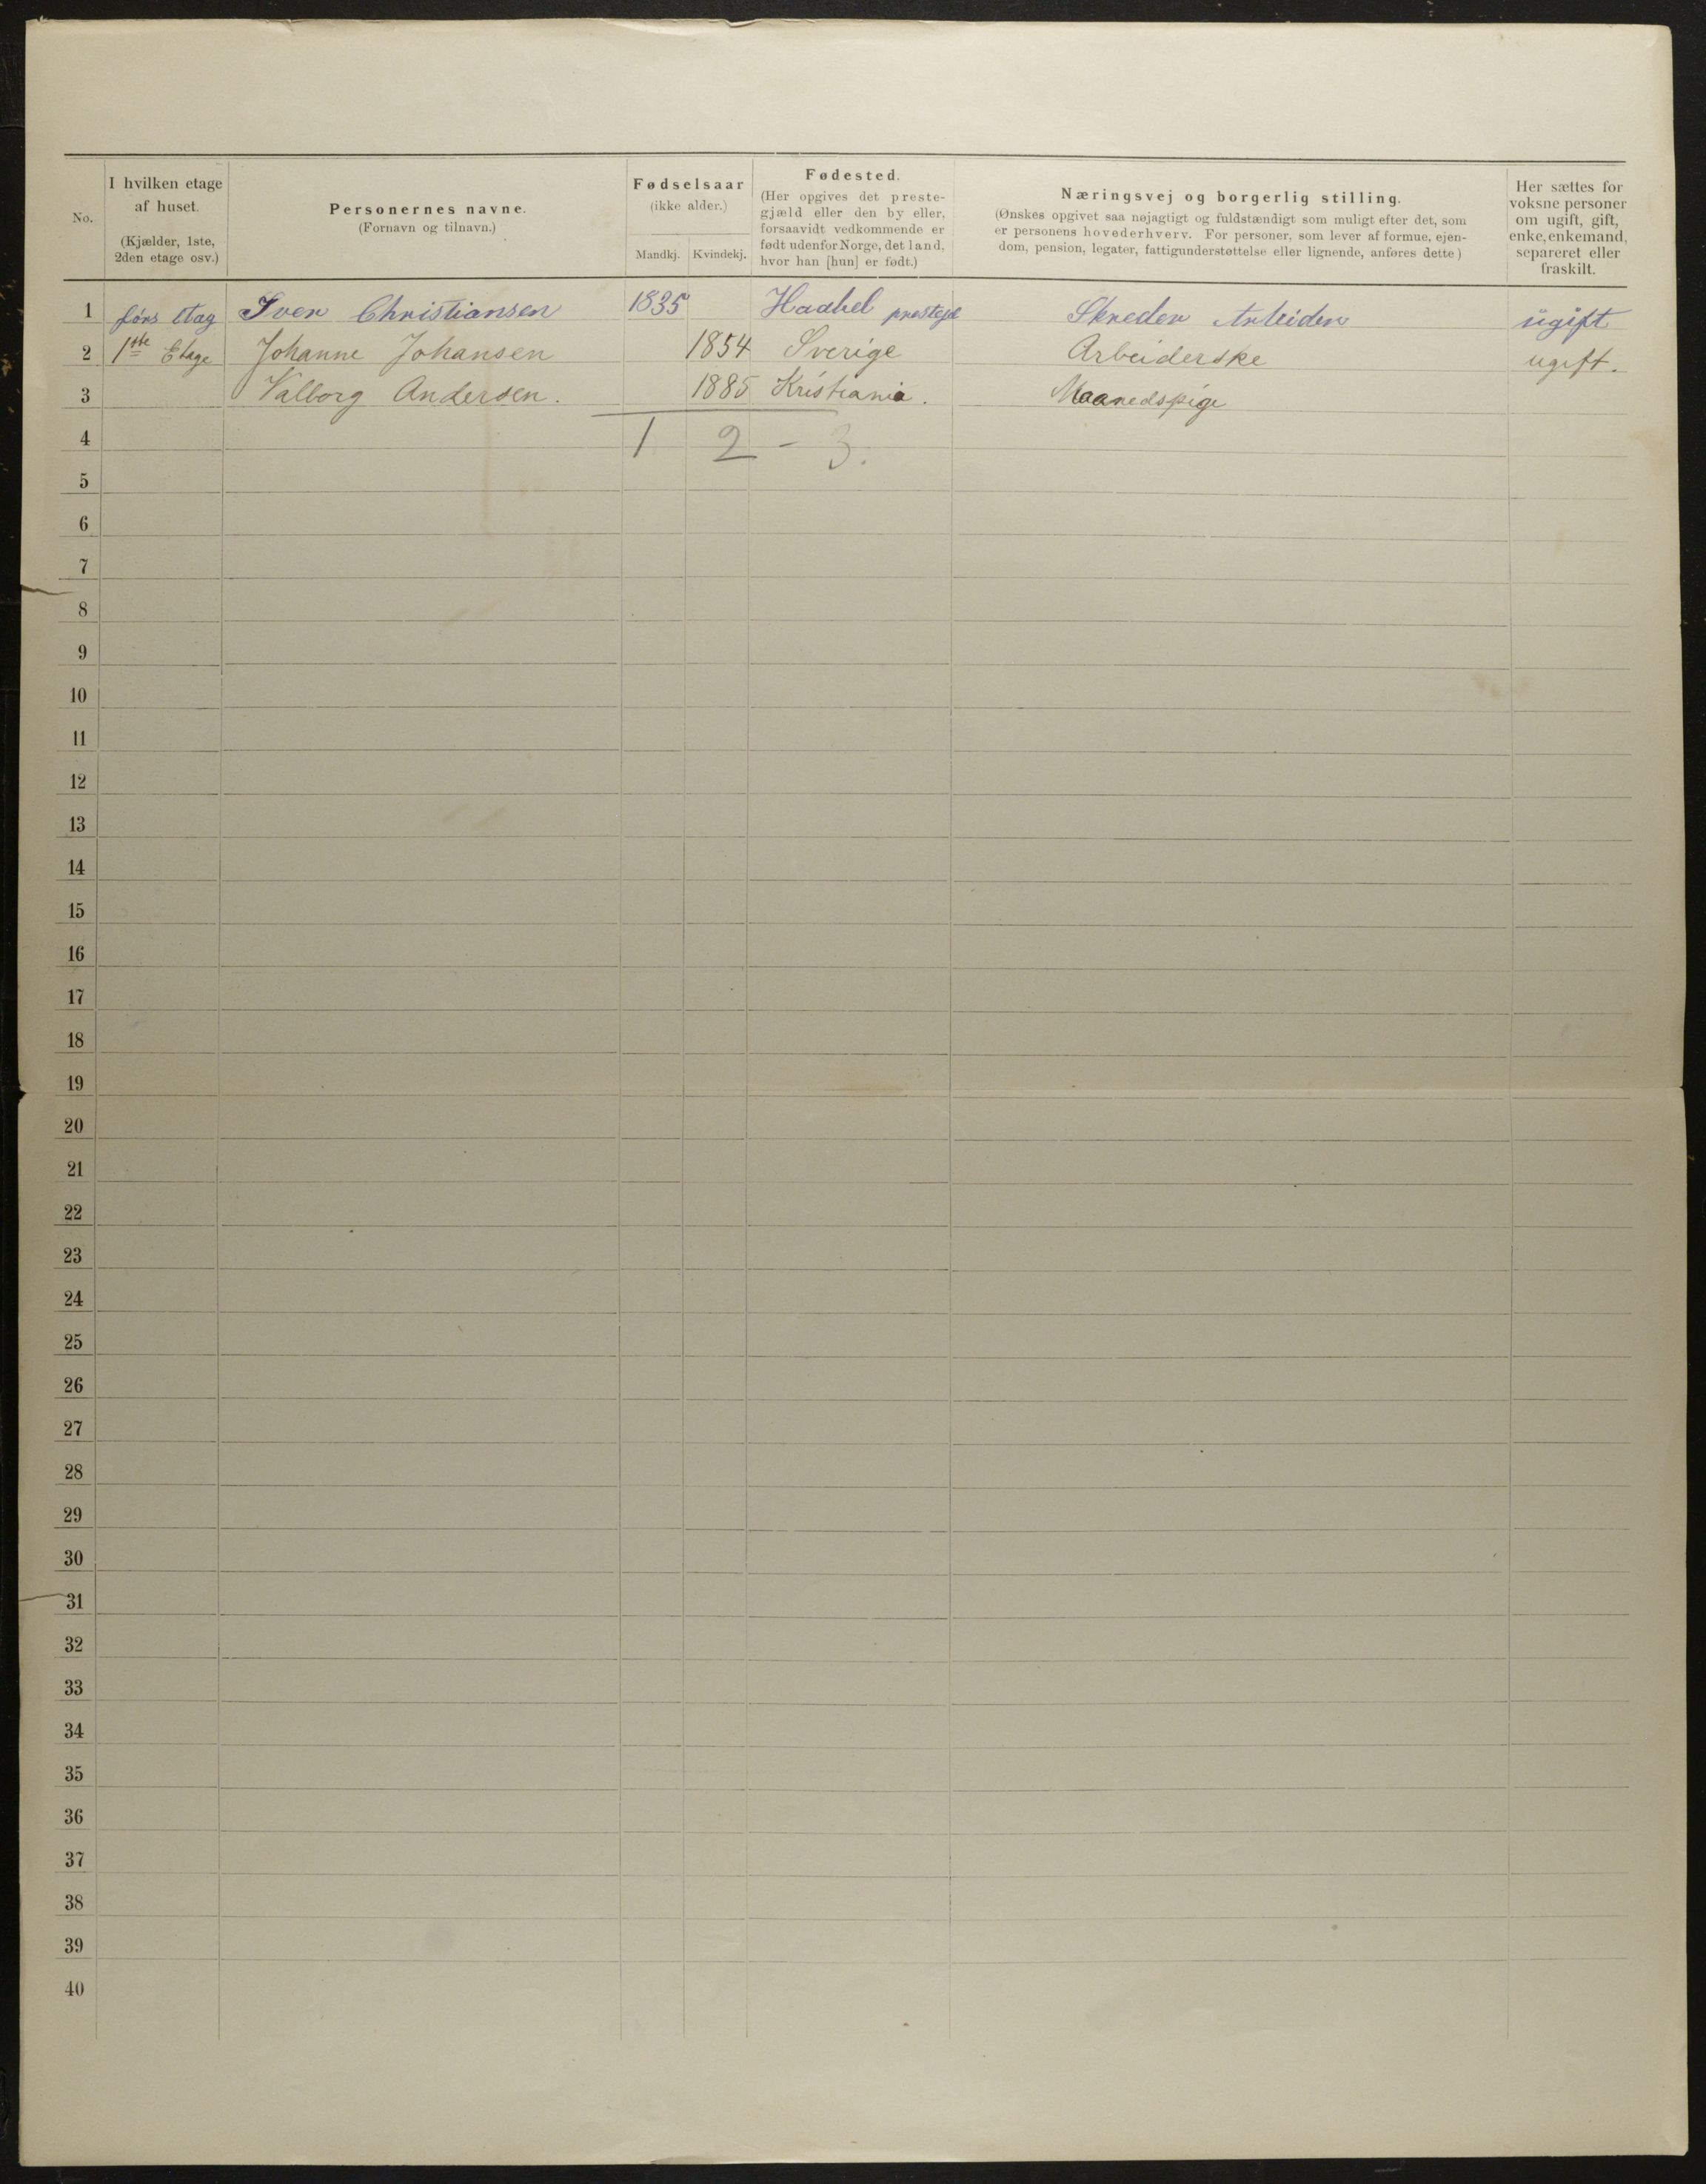 No.
I hvilken etage
af huset.
(Kjælder, 1ste,
2den etage osv.)
Personernes navne.
(Fornavn og tilnavn.)
Fødselsaar
(ikke alder.)
Mandkj. Kvindekj.
Fødested.
(Her opgives det preste-
gjæld eller den by eller,
forsaavidt vedkommende er
født udenfor Norge, det land,
hvor han [hun] er født.)
Næringsvej og borgerlig stilling.
(Ønskes opgivet saa nøjagtigt og fuldstændigt som muligt efter det, som
er personens hovederhverv. For personer, som lever af formue, ejen-
dom, pension, legater, fattigunderstøttelse eller lignende, anføres dette)
Her sættes for
voksne personer
om ugift, gift,
enke, enkemand,
separeret eller
fraskilt.
1 førs Etag Sven Christiansen 1835 Skreder Arbeider ugift
2 1ste Etage Johanne Johansen 1854 Sverige Arbeiderske ugift.
3 Valborg Andersen. 1885 Kristiania. Maanedspige
4 1 2 - 3.
5
6
7
8
9
10
11
12
13
14
15
16
17
18
19
20
21
22
23
24
25
26
27
28
29
30
31
32
33
34
35
36
37
38
39
40